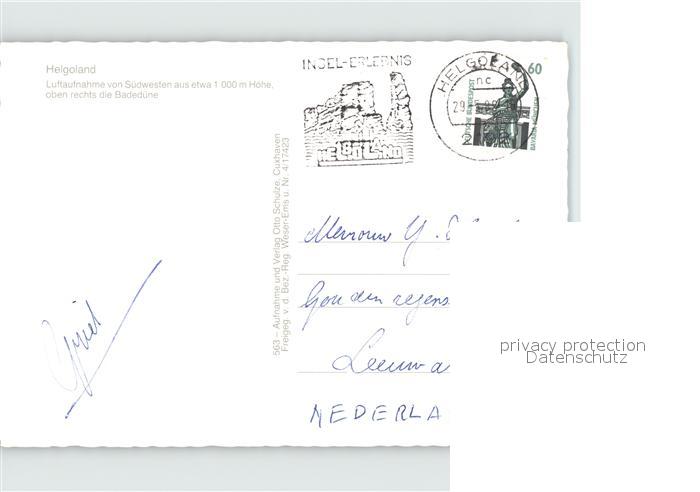 Helgoland
Luftaufnahme von Südwesten aus etwa 1 000 m Höhe,
oben rechts die Badedüne
INSEL-ERLEBNIS
HELGOLAND
HELGOLAND
nc
60
DEUTSCHE BUNDESPOST
BAVARIA MÜNCHEN
563 – Aufnahme und Verlag Otto Schulze, Cuxhaven
Freigeg. v. d. Bez.-Reg. Weser-Ems u. Nr. 4/17423
Mevrouw
Gouden regens
Leeuwa
NEDERLA
privacy protection
Datenschutz